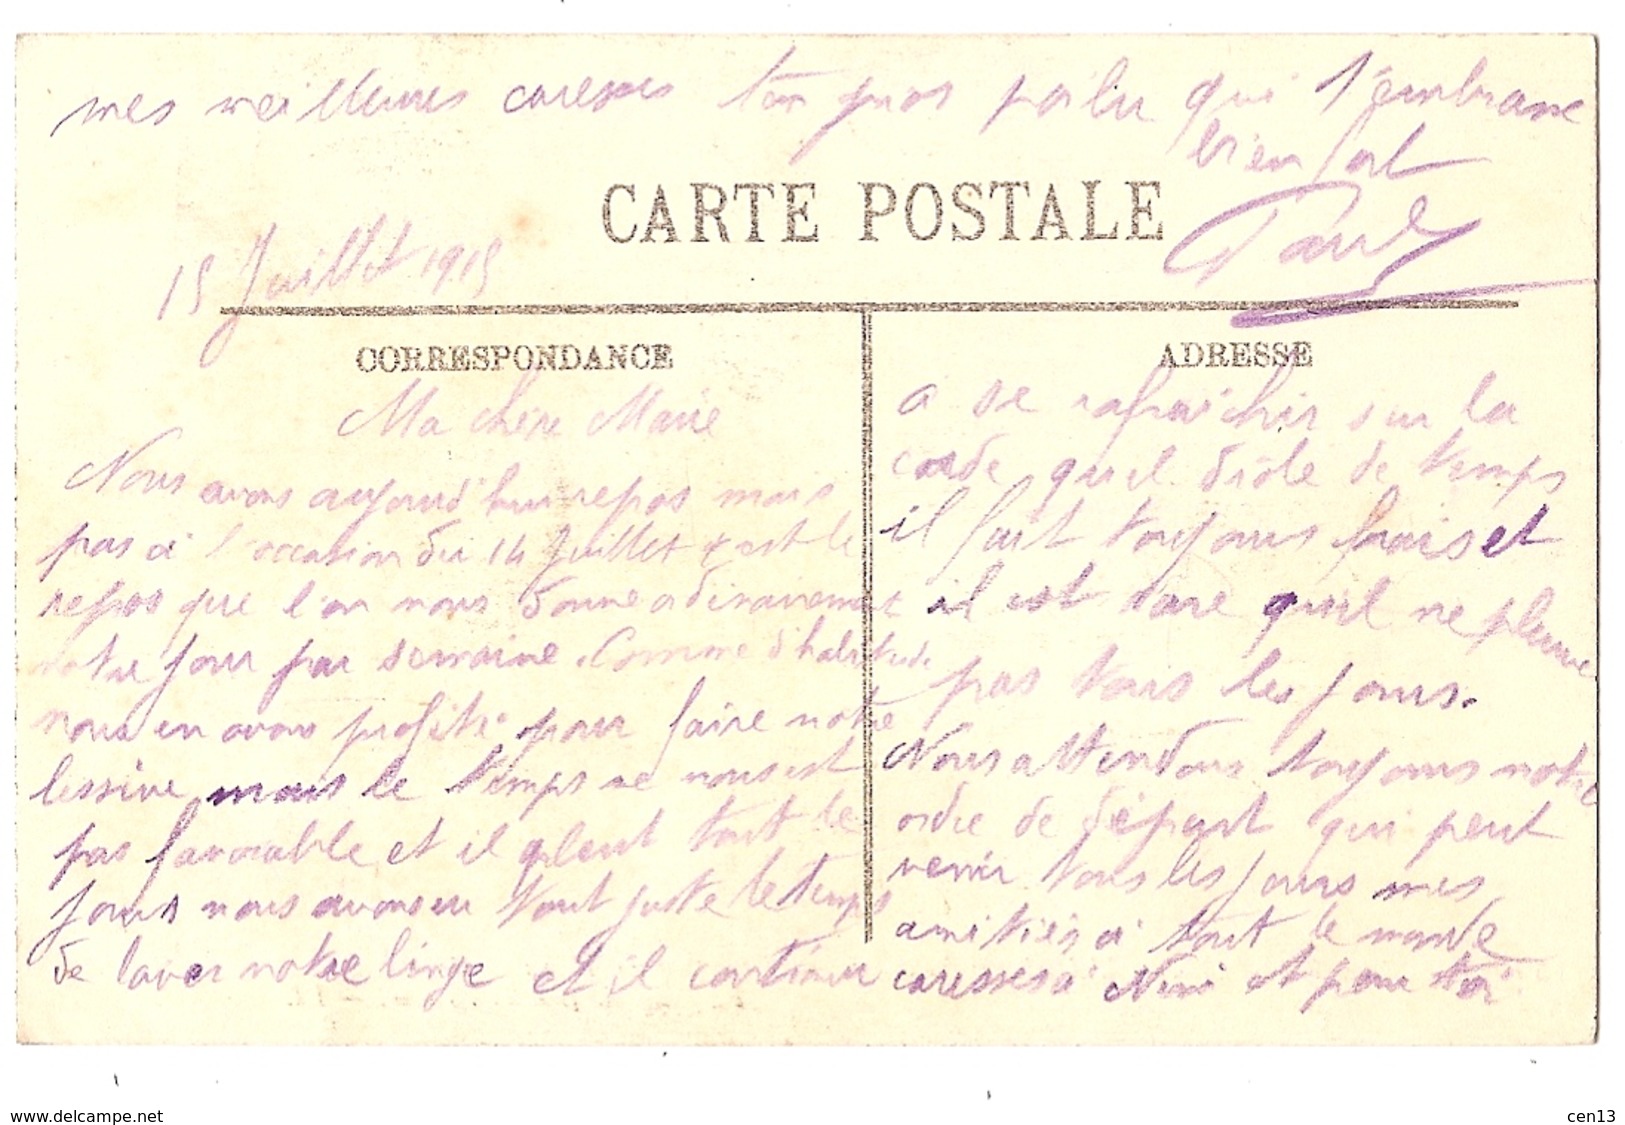 mes meilleures caresses ton gros poilu qui t'embrasse
bien fort
CARTE POSTALE
Paul
15 Juillet 1915
CORRESPONDANCE
ADRESSE
Ma chère Marie
Nous avons aujourd'hui repos mais
pas à l'occation du 14 Juillet c'est le
repos que l'on nous donne ordinairement
notre jour par semaine. Comme d'habitude
nous en avons profité pour faire notre
lessive mais le temps ne nous est
pas favorable et il pleut tout le
jours nous avons eu tout juste le temps
de laver notre linge et il continue
a se rafraichir sur la
corde, quel drôle de temps
il fait toujours frais et
il est rare qu'il ne pleuve
pas tous les jours.
Nous attendons toujours notre
ordre de départ qui peut
venir tous les jours mes
amitiés à tout le monde
caresses à Nini et pour toi
www.delcampe.net
cen13